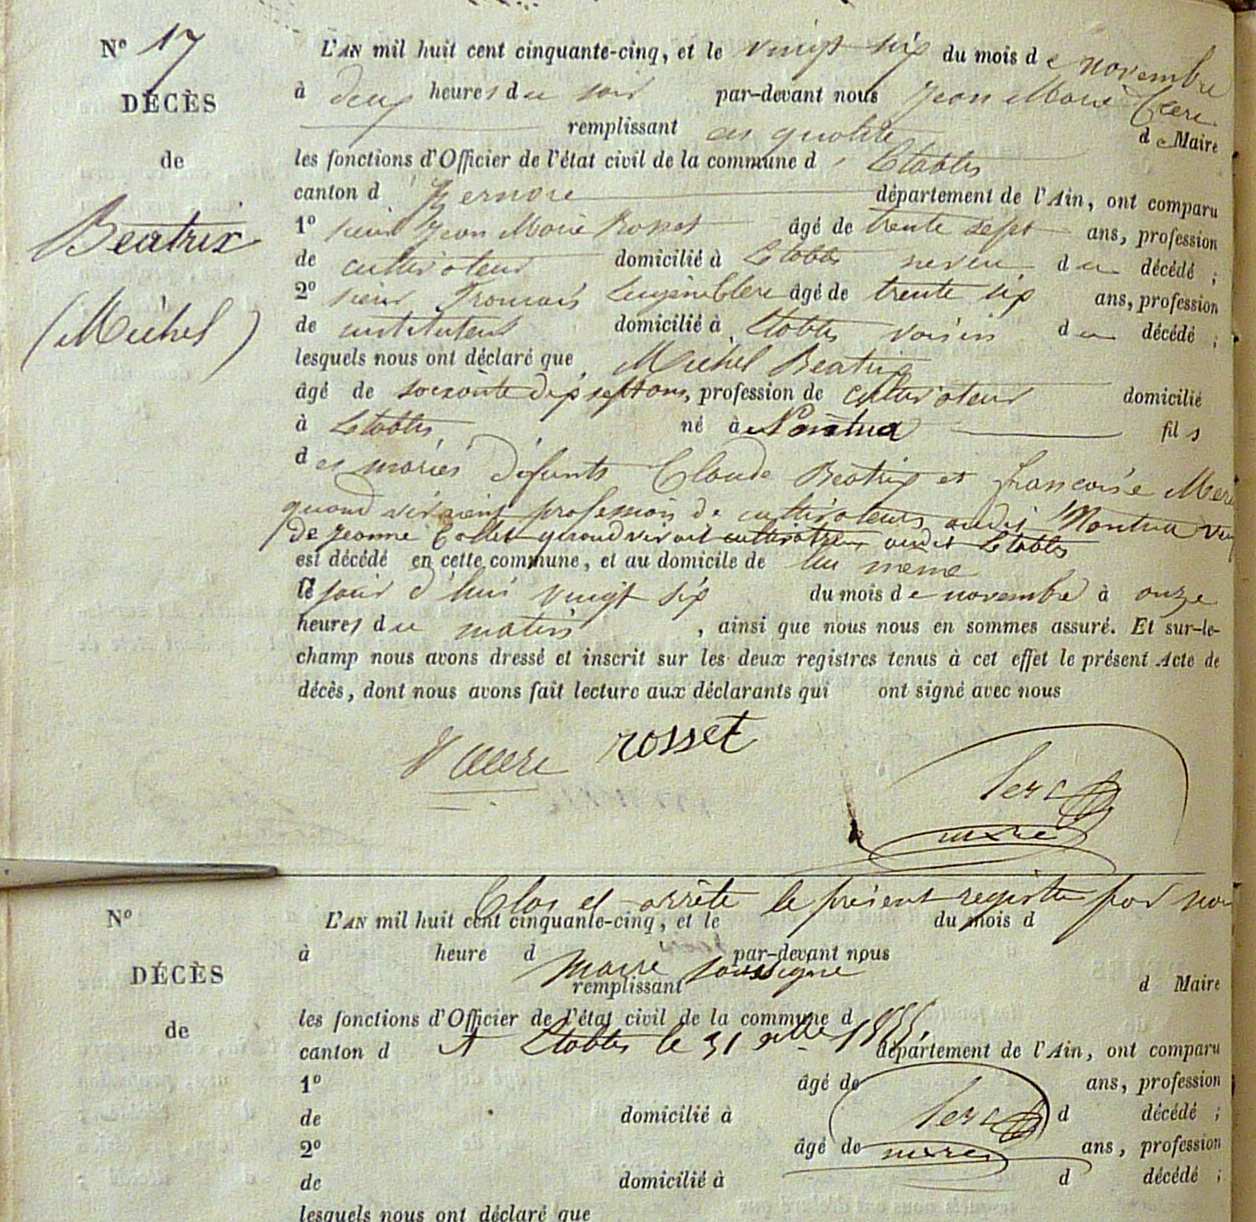 Nº 17
DÉCÈS
de
Beatrix
(Michel)
L'AN mil huit cent cinquante-cinq, et le vingt six du mois de novembre
à deux heures du soir par-devant nous Jean Marie
remplissant en qualité de Maire
les fonctions d'Officier de l'état civil de la commune d'Etables
canton d département de l'Ain, ont comparu
1º sieur Jean Marie Rosset âgé de trente sept ans, profession
de cultivateur domicilié à Etables neveu du décédé ;
2º sieur François âgé de trente six ans, profession
de instituteur domicilié à Etables voisin du décédé ;
lesquels nous ont déclaré que Michel Beatrix
âgé de soixante dix sept ans, profession de cultivateur domicilié
à Etables né à Nantua fils
des mariés défunts Claude Beatrix et françoise
quand vivaient profession de cultivateurs audit Nantua
de Jeanne quand vivait audit Etables
est décédé en cette commune, et au domicile de lui meme
le jour d'hui vingt six du mois de novembre à onze
heures du matin , ainsi que nous nous en sommes assuré. Et sur-le-
champ nous avons dressé et inscrit sur les deux registres tenus à cet effet le présent Acte de
décès, dont nous avons fait lecture aux déclarants qui ont signé avec nous
rosset
mere
Clos et arrête le présent registre par nou
Nº L'AN mil huit cent cinquante-cinq, et le du mois d
à heure d par-devant nous
maire soussigné
DÉCÈS
de
remplissant d Maire
les fonctions d'Officier de l'état civil de la commune d
A Etables le 31 1855.
canton d département de l'Ain, ont comparu
1º âgé de ans, profession
de domicilié à d décédé ;
2º âgé de ans, profession
mere
de domicilié à d décédé ;
lesquels nous ont déclaré que